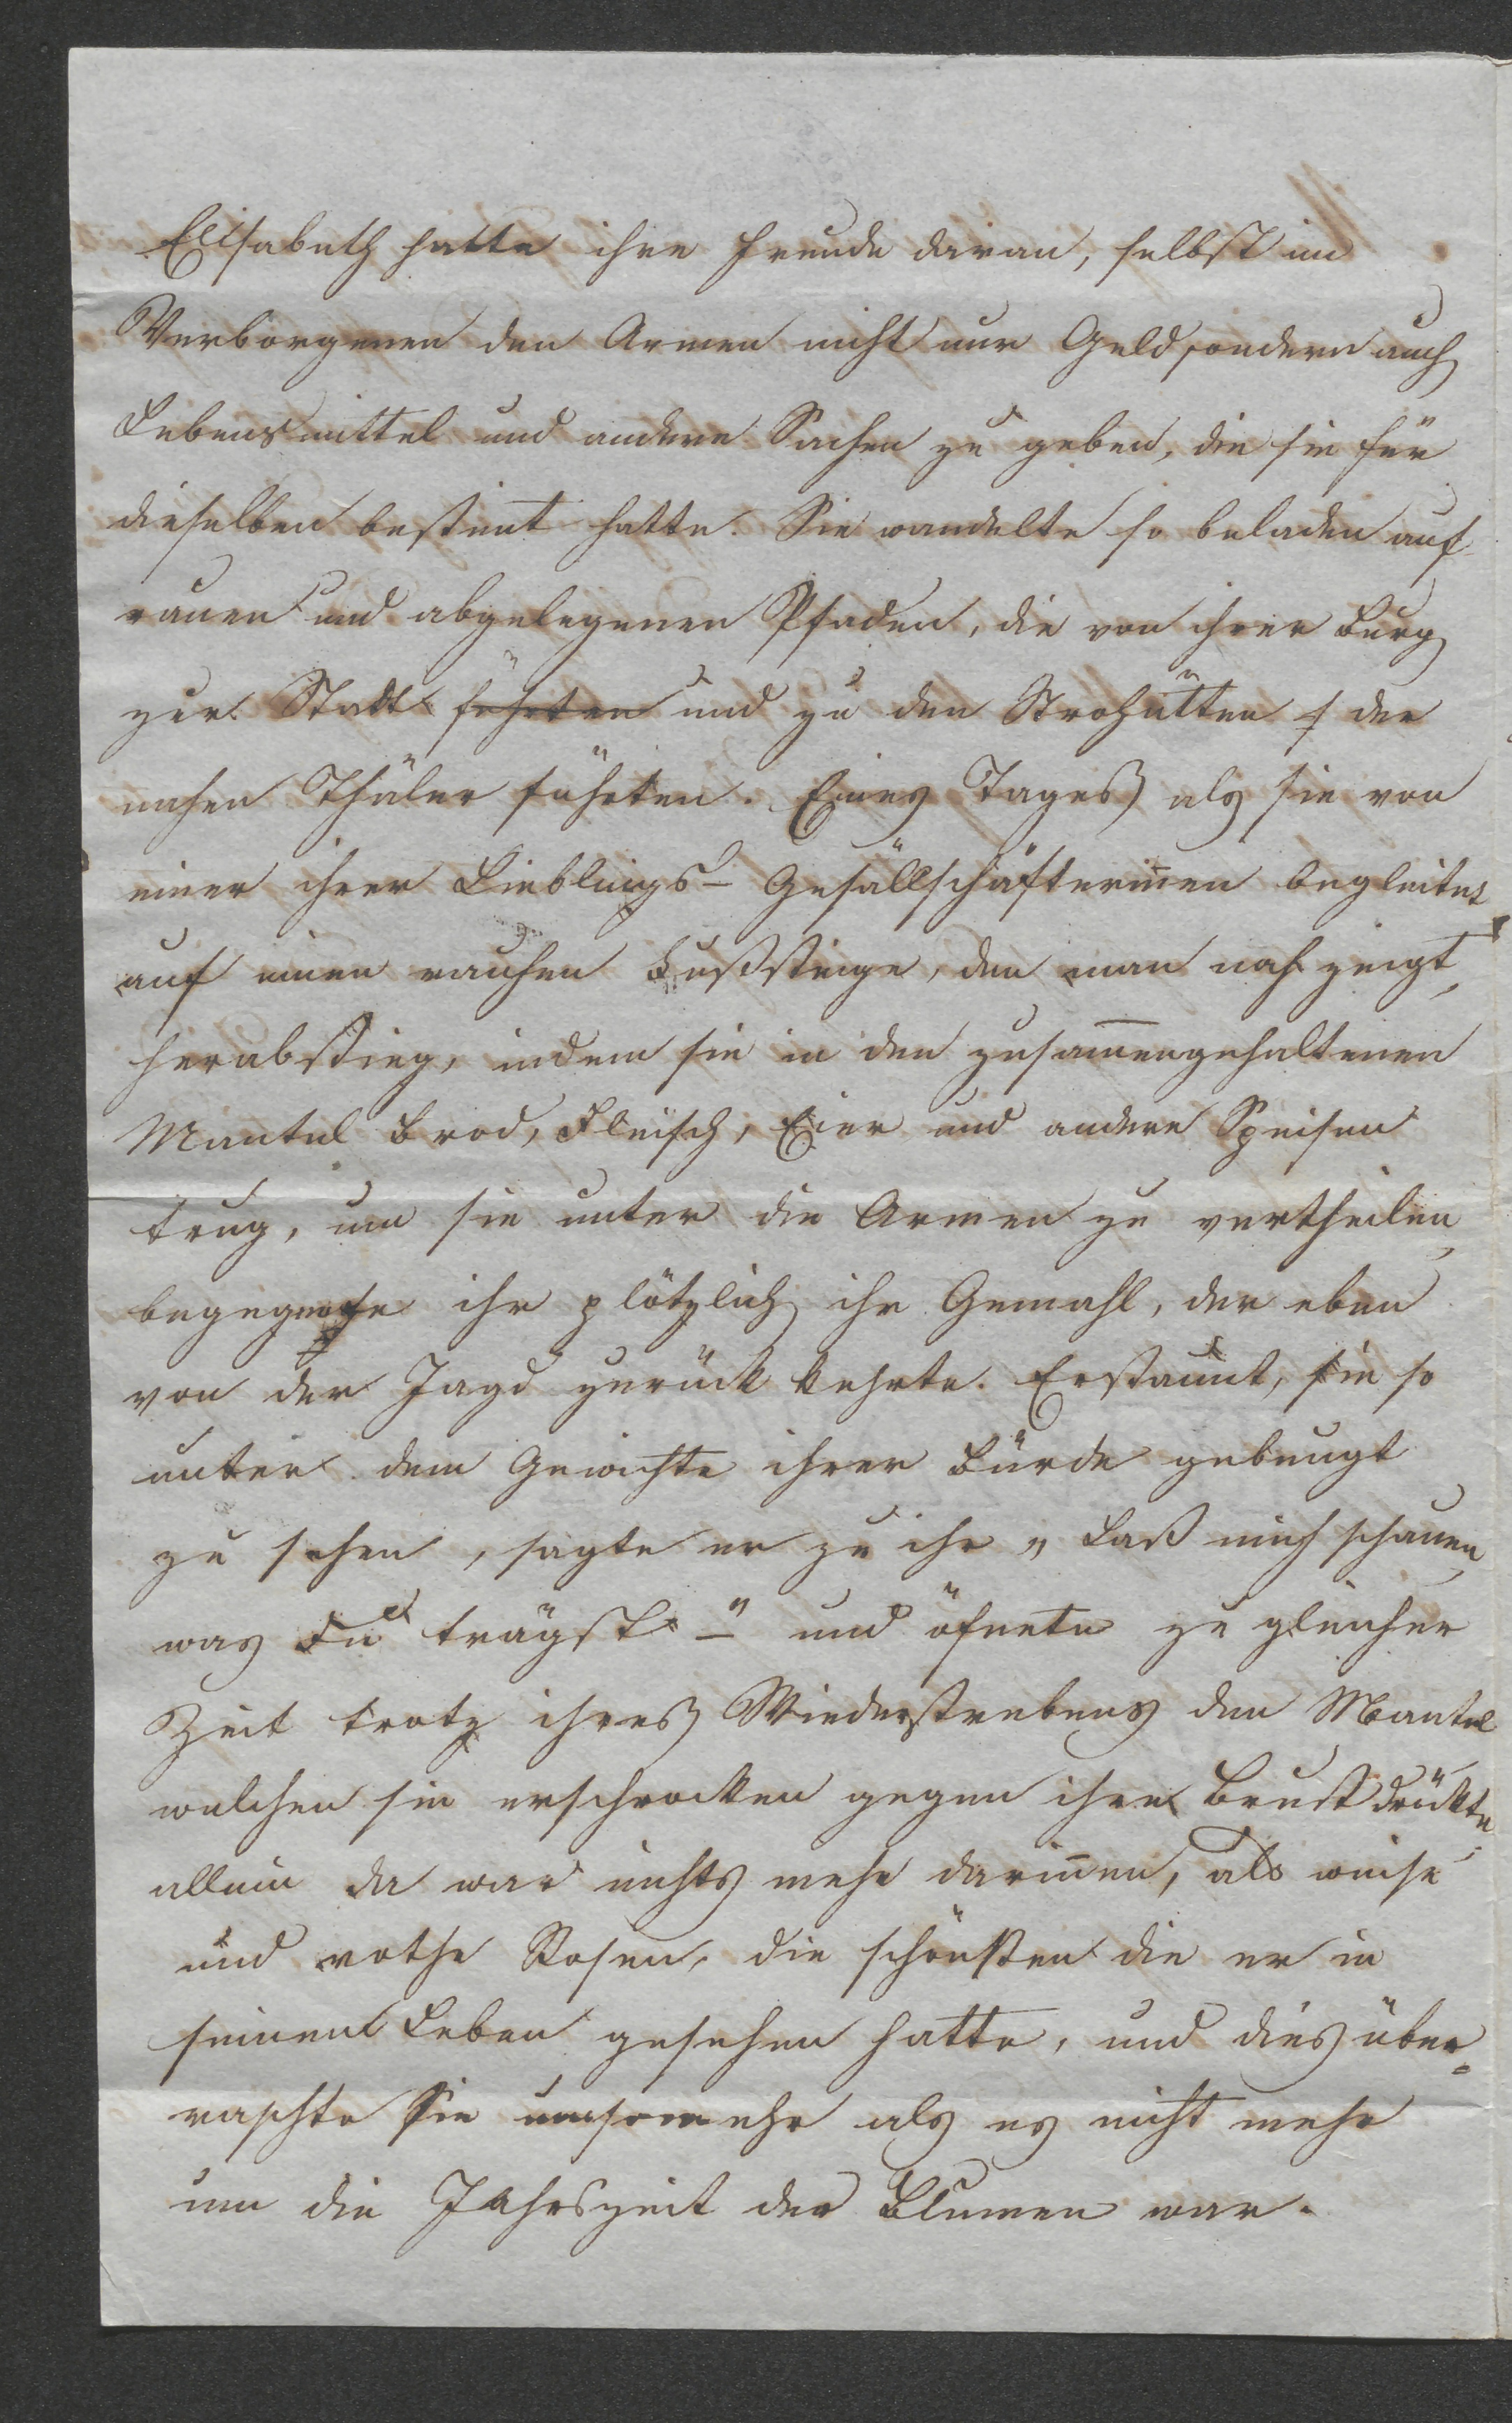 Elisabeth hatte ihre Freude daran, selbst im
Verborgenen den Armen nicht nur Geld sondern auch
Lebensmittel und andere Sachen zu geben, die sie für
dieselben bestimt hatte. Sie wandelte so beladen auf
rauen und abgelegenen Pfaden, die von ihrer Burg
zur Stadt führten und zu den Strohütten der
nahen Thäler führten. Eines Tages als sie von
einer ihrer Lieblings- Gesällschäfterinen begleitet
auf einen rauhen Fußsteige, den man noch zeigt,
herabstieg, indem sie in den zusamengehaltenen
Mantel Brod, Fleisch, Eier und andere Speisen
trug, um sie unter die Armen zu vertheilen,
begegnete ihr plötzlich ihr Gemahl, der eben
von der Jagd zurück kehrte. Erstaunt, sie so
unter dem Gewichte ihrer Bürde gebeugt
zu sehen, sagte er zu ihr „ Laß mich schauen,
was Du trägst – " und öfnete zu gleicher
Zeit trotz ihres Wiederstrebens den Mantel
welchen sie erschrocken gegen ihre Brust drückte,
allein da war nichts mehr darinen, als weise
und rothe Rosen, die schönsten die er in
seinem Leben gesehen hatte, und dies über-
raschte Sie umsomehr als es nicht mehr
um die Jahrszeit der Blumen war.